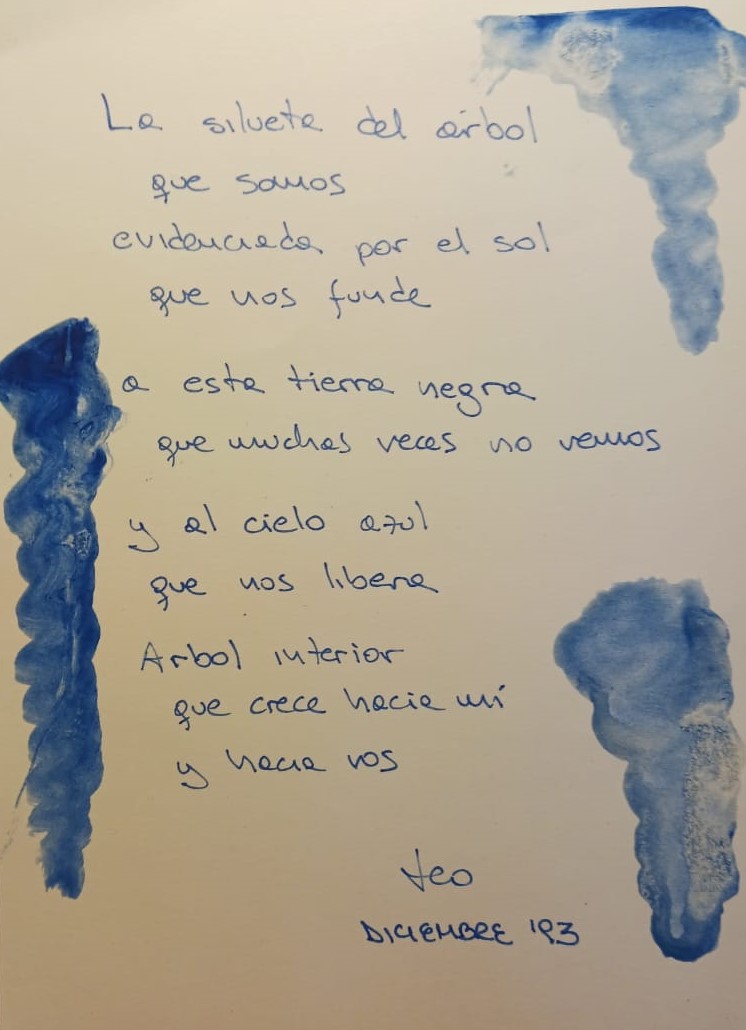 La silueta del árbol
que somos
evidenciada por el sol
que nos funde
a esta tierra negra
que muchas veces no vemos
y al cielo azul
que nos libera
Arbol interior
que crece hacia mí
y hacia vos
teo
DICIEMBRE '93